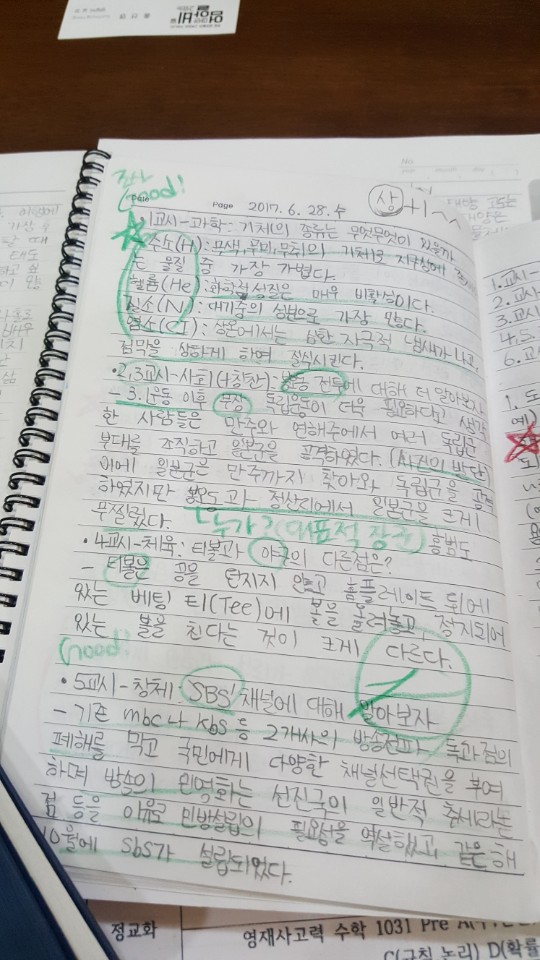 참 Good!
Page 2017. 6. 28. 수
사+!~~
1교시-과학: 기체의 종류는 무엇무엇이 있을까
수소(H): 무색, 무미, 무취의 기체로 지구상에
는 물질 중 가장 가볍다.
헬륨(He): 화학적 성질은 매우 비활성이다.
질소(N): 대기중의 성분으로 가장 많다.
염소(Cl): 상온에서는 심한 자극적 냄새가 나고,
점막을 상하게 하여 질식시킨다.
•2,3교시-사회(4창찬): 봉오동 전투에 대해 더 알아보자
- 3.1운동 이후 무장 독립운동이 더욱 필요하다고 생각
한 사람들은 만주와 연해주에서 여러 독립군
부대를 조직하고 일본군을 공격하였다. (사건의 발단)
이에 일본군은 만주까지 찾아와 독립군을 공격
하였지만 봉오동과 청산리에서 일본군을 크게
무찔렀다.
누가? (대표적 장군) 홍범도
•4교시-체육: 티볼과 야구의 다른점은?
- 티볼은 공을 던지지 않고 홈플레이트 뒤에
있는 베팅 티(Tee)에 볼을 올려놓고 정지되어
있는 볼을 친다는 것이 크게 다르다.
Good!
•5교시-창체 SBS' 채널에 대해 알아보자
- 기존 mbc나 kbs 등 2개사의 방송전파 독과점의
폐해를 막고 국민에게 다양한 채널선택권을 부여
하며 방송의 민영화는 선진국의 일반적 추세라는
점 등을 이유로 민방설립의 필요성을 역설했고 같은 해
10월에 sbs가 설립되었다.
정교화
영재사고력 수학 1031 Pre
C(규칙 논리) D(확률